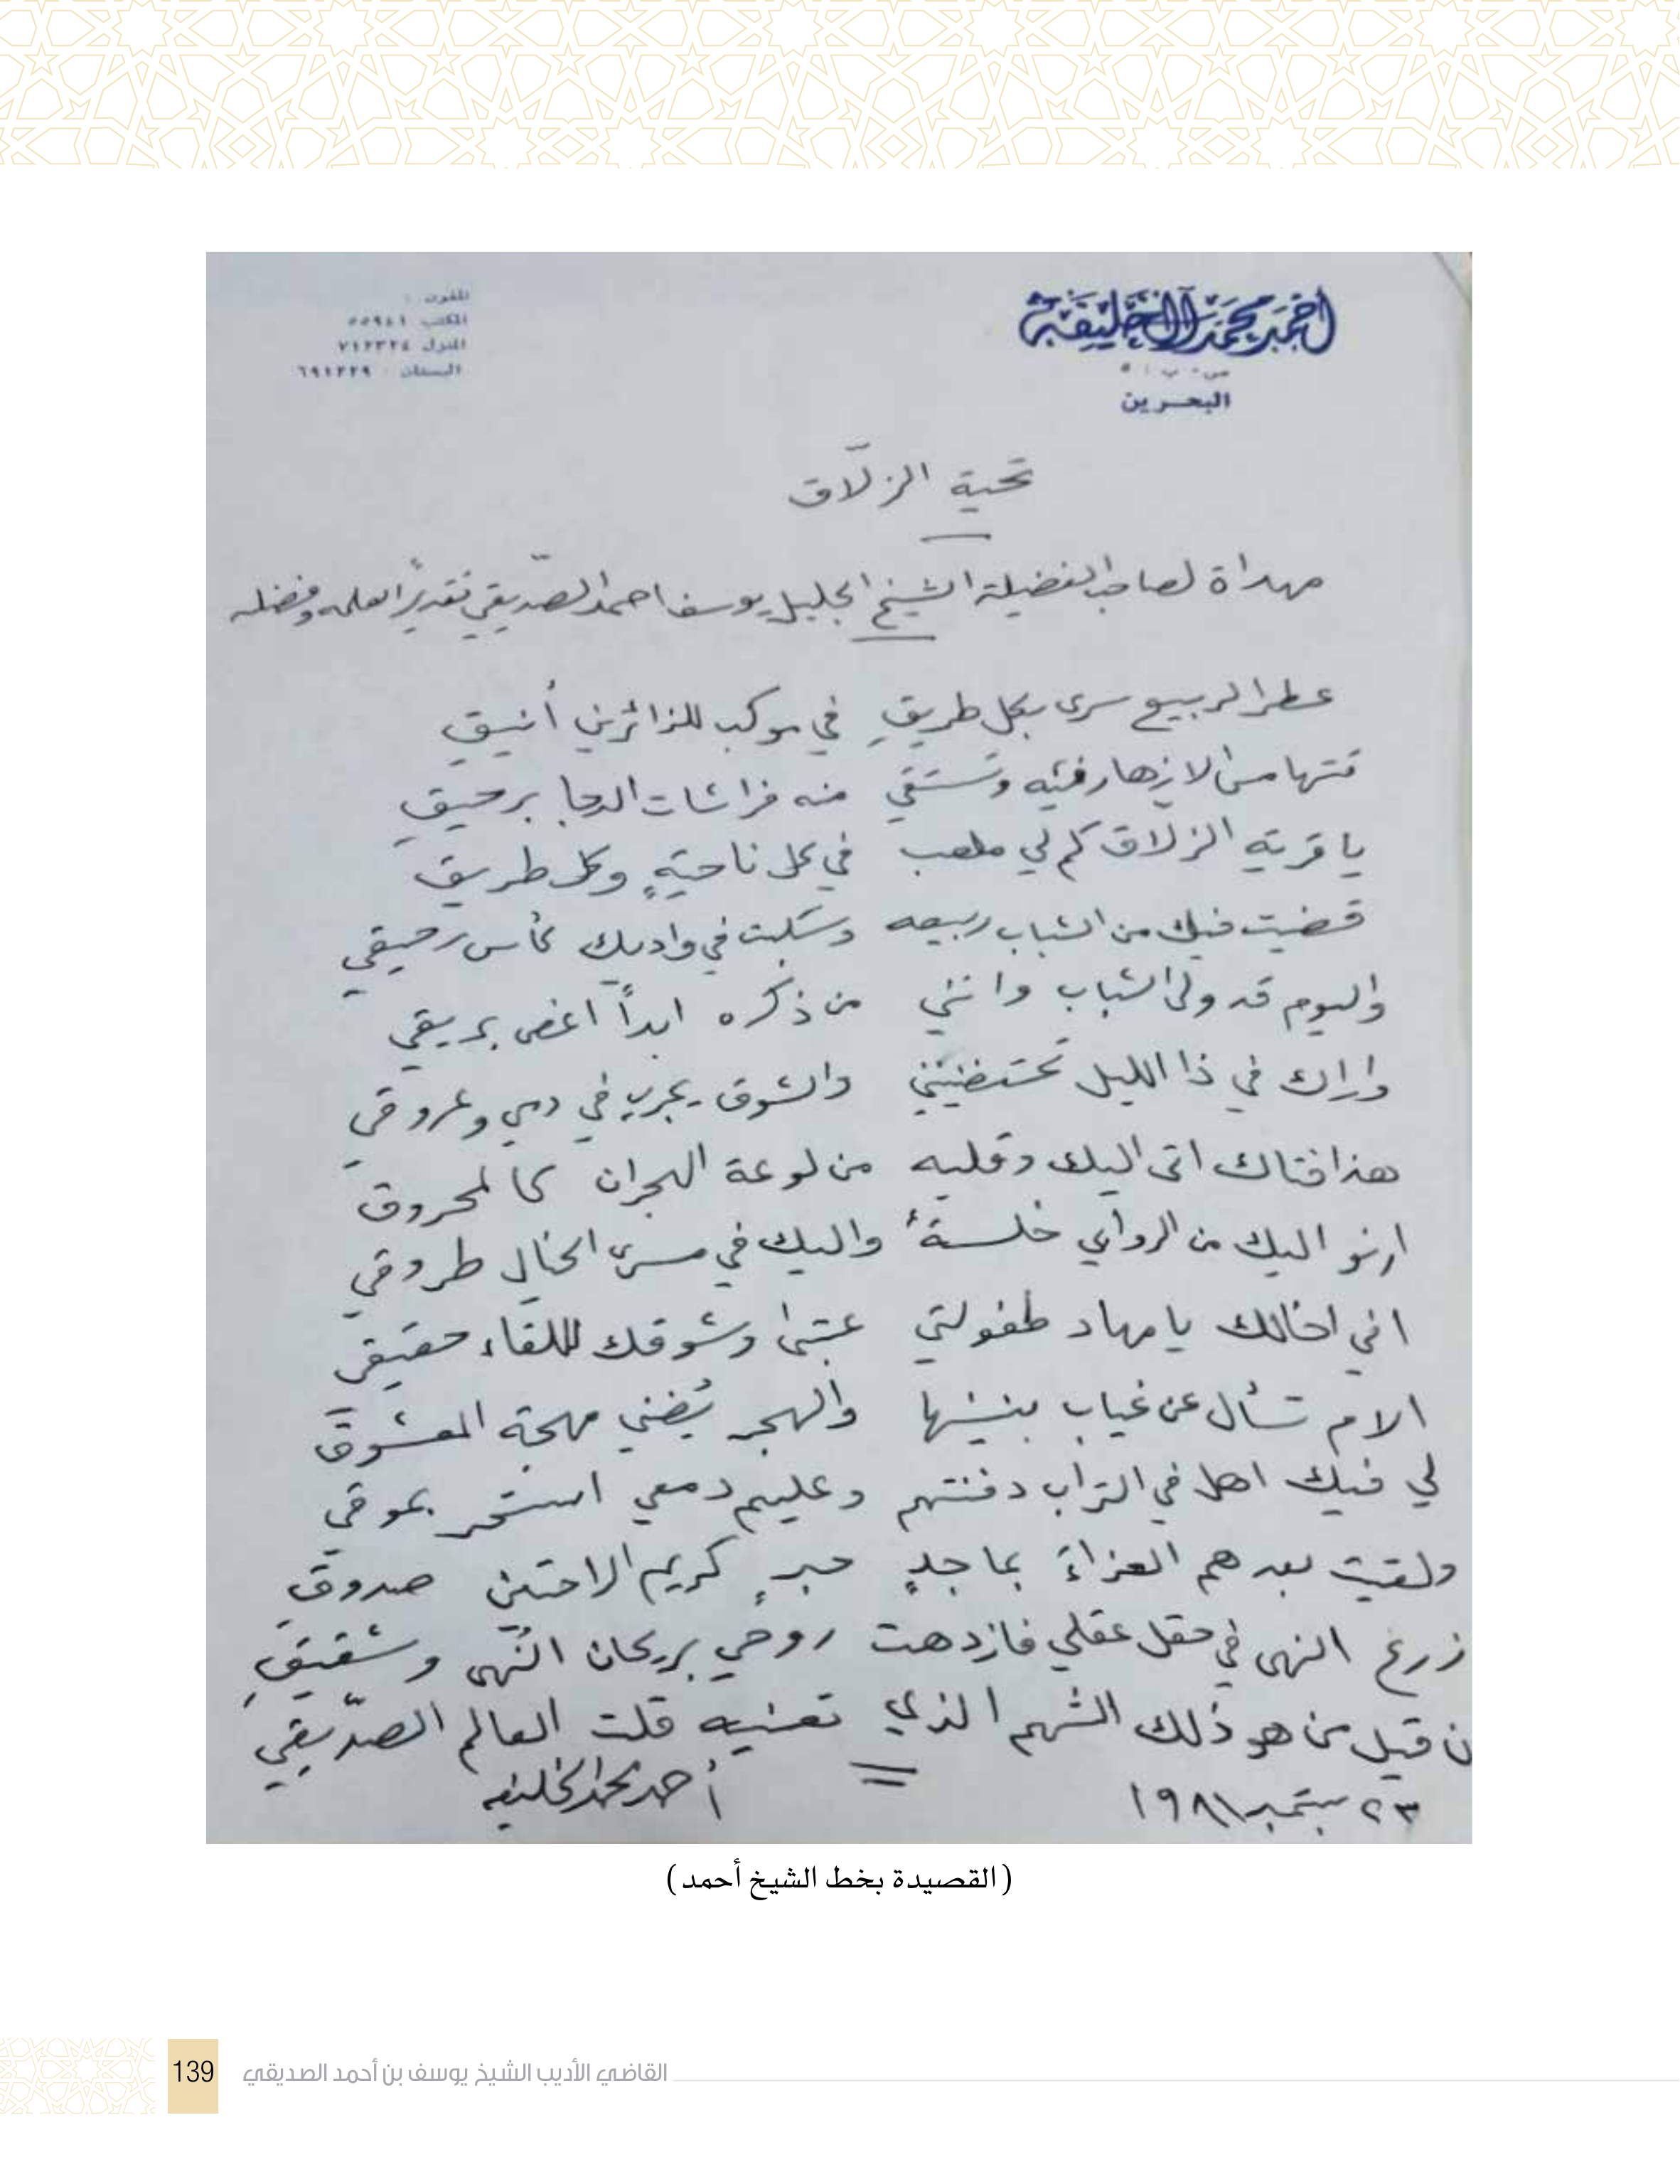 احمد محمد آل خليفة
ص . ب : ٥
البحرين
تلفون :
المكتب ٥٥٩٤١
المنزل ٧١٢٣٢٤
البستان ٦٩١٣٢٩
تحية الزلّاق
مهداة لصاحب الفضيلة الشيخ الجليل يوسف احمد الصدّيقي تقديرًا لعلمه وفضله
عطر الربيع سرى بكل طريقِ في موكب للزائرين أنيقِ
من الازهار فيه وتستقي منه فراشات الدجا برحيقِ
يا قرية الزلاق كم لي ملعب في كل ناحيةٍ وكل طريق
قضيت فيك من الشباب ربيعه وسكبت في واديك كأس رحيقي
واليوم قد ولى الشباب وانني من ذكره ابداً اغص بريقي
واراك في ذا الليل تحتضنينني والشوق يجري في دمي وعروقي
هذا فتاك اتى اليك وقلبه من لوعة الهجران كالمحروق
ارنو اليك من الروابي خلسةً واليك في مسرى الخيال طروقي
اني اخالك يا مهاد طفولتي عتبى وشوقك للقاء حقيقي
الام تسأل عن غياب بنيها والهجر يُضني مهجة المعشوق
لي فيك اهل في التراب دفنتهم وعليهم دمعي استحر بموقي
ولقيت بعدهم العزاءَ بماجدٍ حبرٍ كريم الراحتين صدوقِ
زرع النهى في حقل عقلي فازدهت روحي بريحان النُهى وشقيقِ
ن قيل من هو ذلك الشهم الذي تعنيه قلت العالم الصدّيقي
٢٣ سبتمبر ١٩٨١ أحمد محمد الخليفه
(القصيدة بخط الشيخ أحمد)
139 القاضي الأديب الشيخ يوسف بن أحمد الصديقي